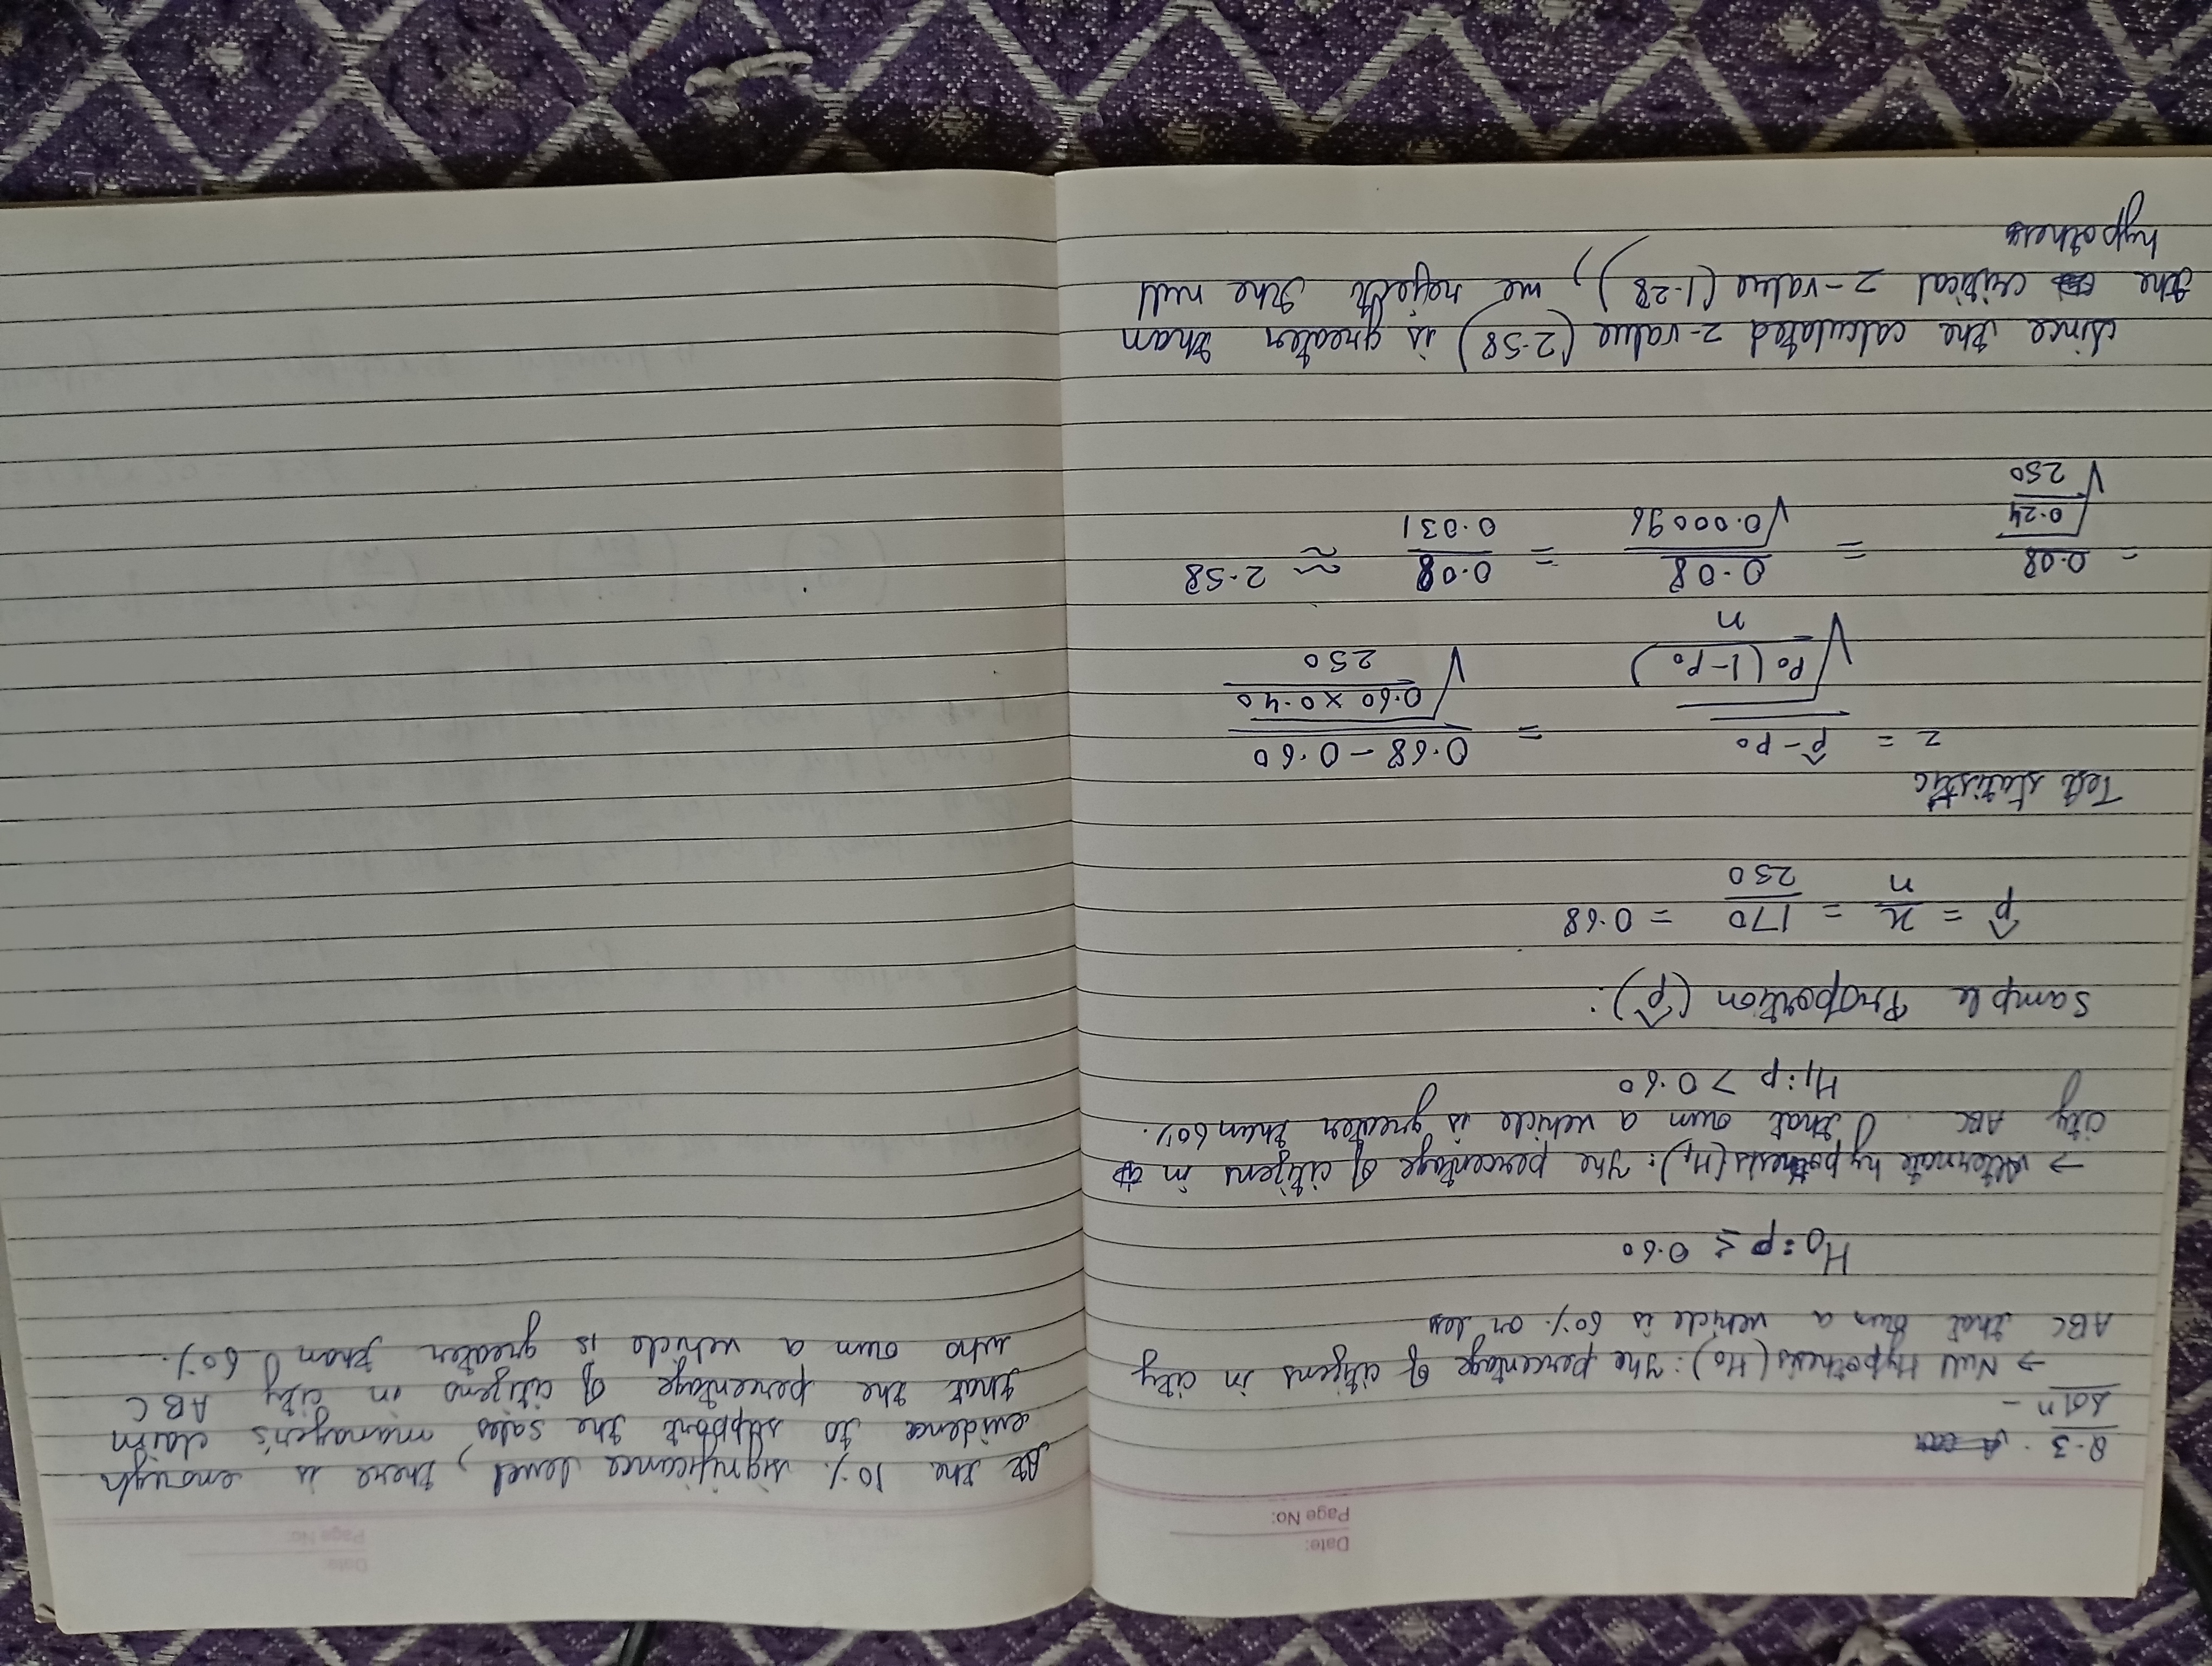 Date:
Page No:
Q-3.
Soln -
→ Null Hypothesis (H0): The percentage of citizens in city
ABC that own a vehicle is 60% or less
H0: p ≤ 0.60
→ Alternate hypothesis (H1): The percentage of citizens in
city ABC that own a vehicle is greater than 60%.
H1: p > 0.60
Sample Proportion (p̂):
p̂ = x/n = 170/250 = 0.68
Test statistic
z = (p̂ - p0)/√(p0(1-p0)/n) = (0.68 - 0.60)/√(0.60 × 0.40/250)
= 0.08/√(0.24/250) = 0.08/√0.00096 = 0.08/0.031 ≈ 2.58
Since the calculated z-value (2.58) is greater than
the critical z-value (1.28), we reject the null
hypothesis
Date:
Page No:
At the 10% significance level, there is enough
evidence to support the sales manager's claim
that the percentage of citizens in city ABC
who own a vehicle is greater than 60%.